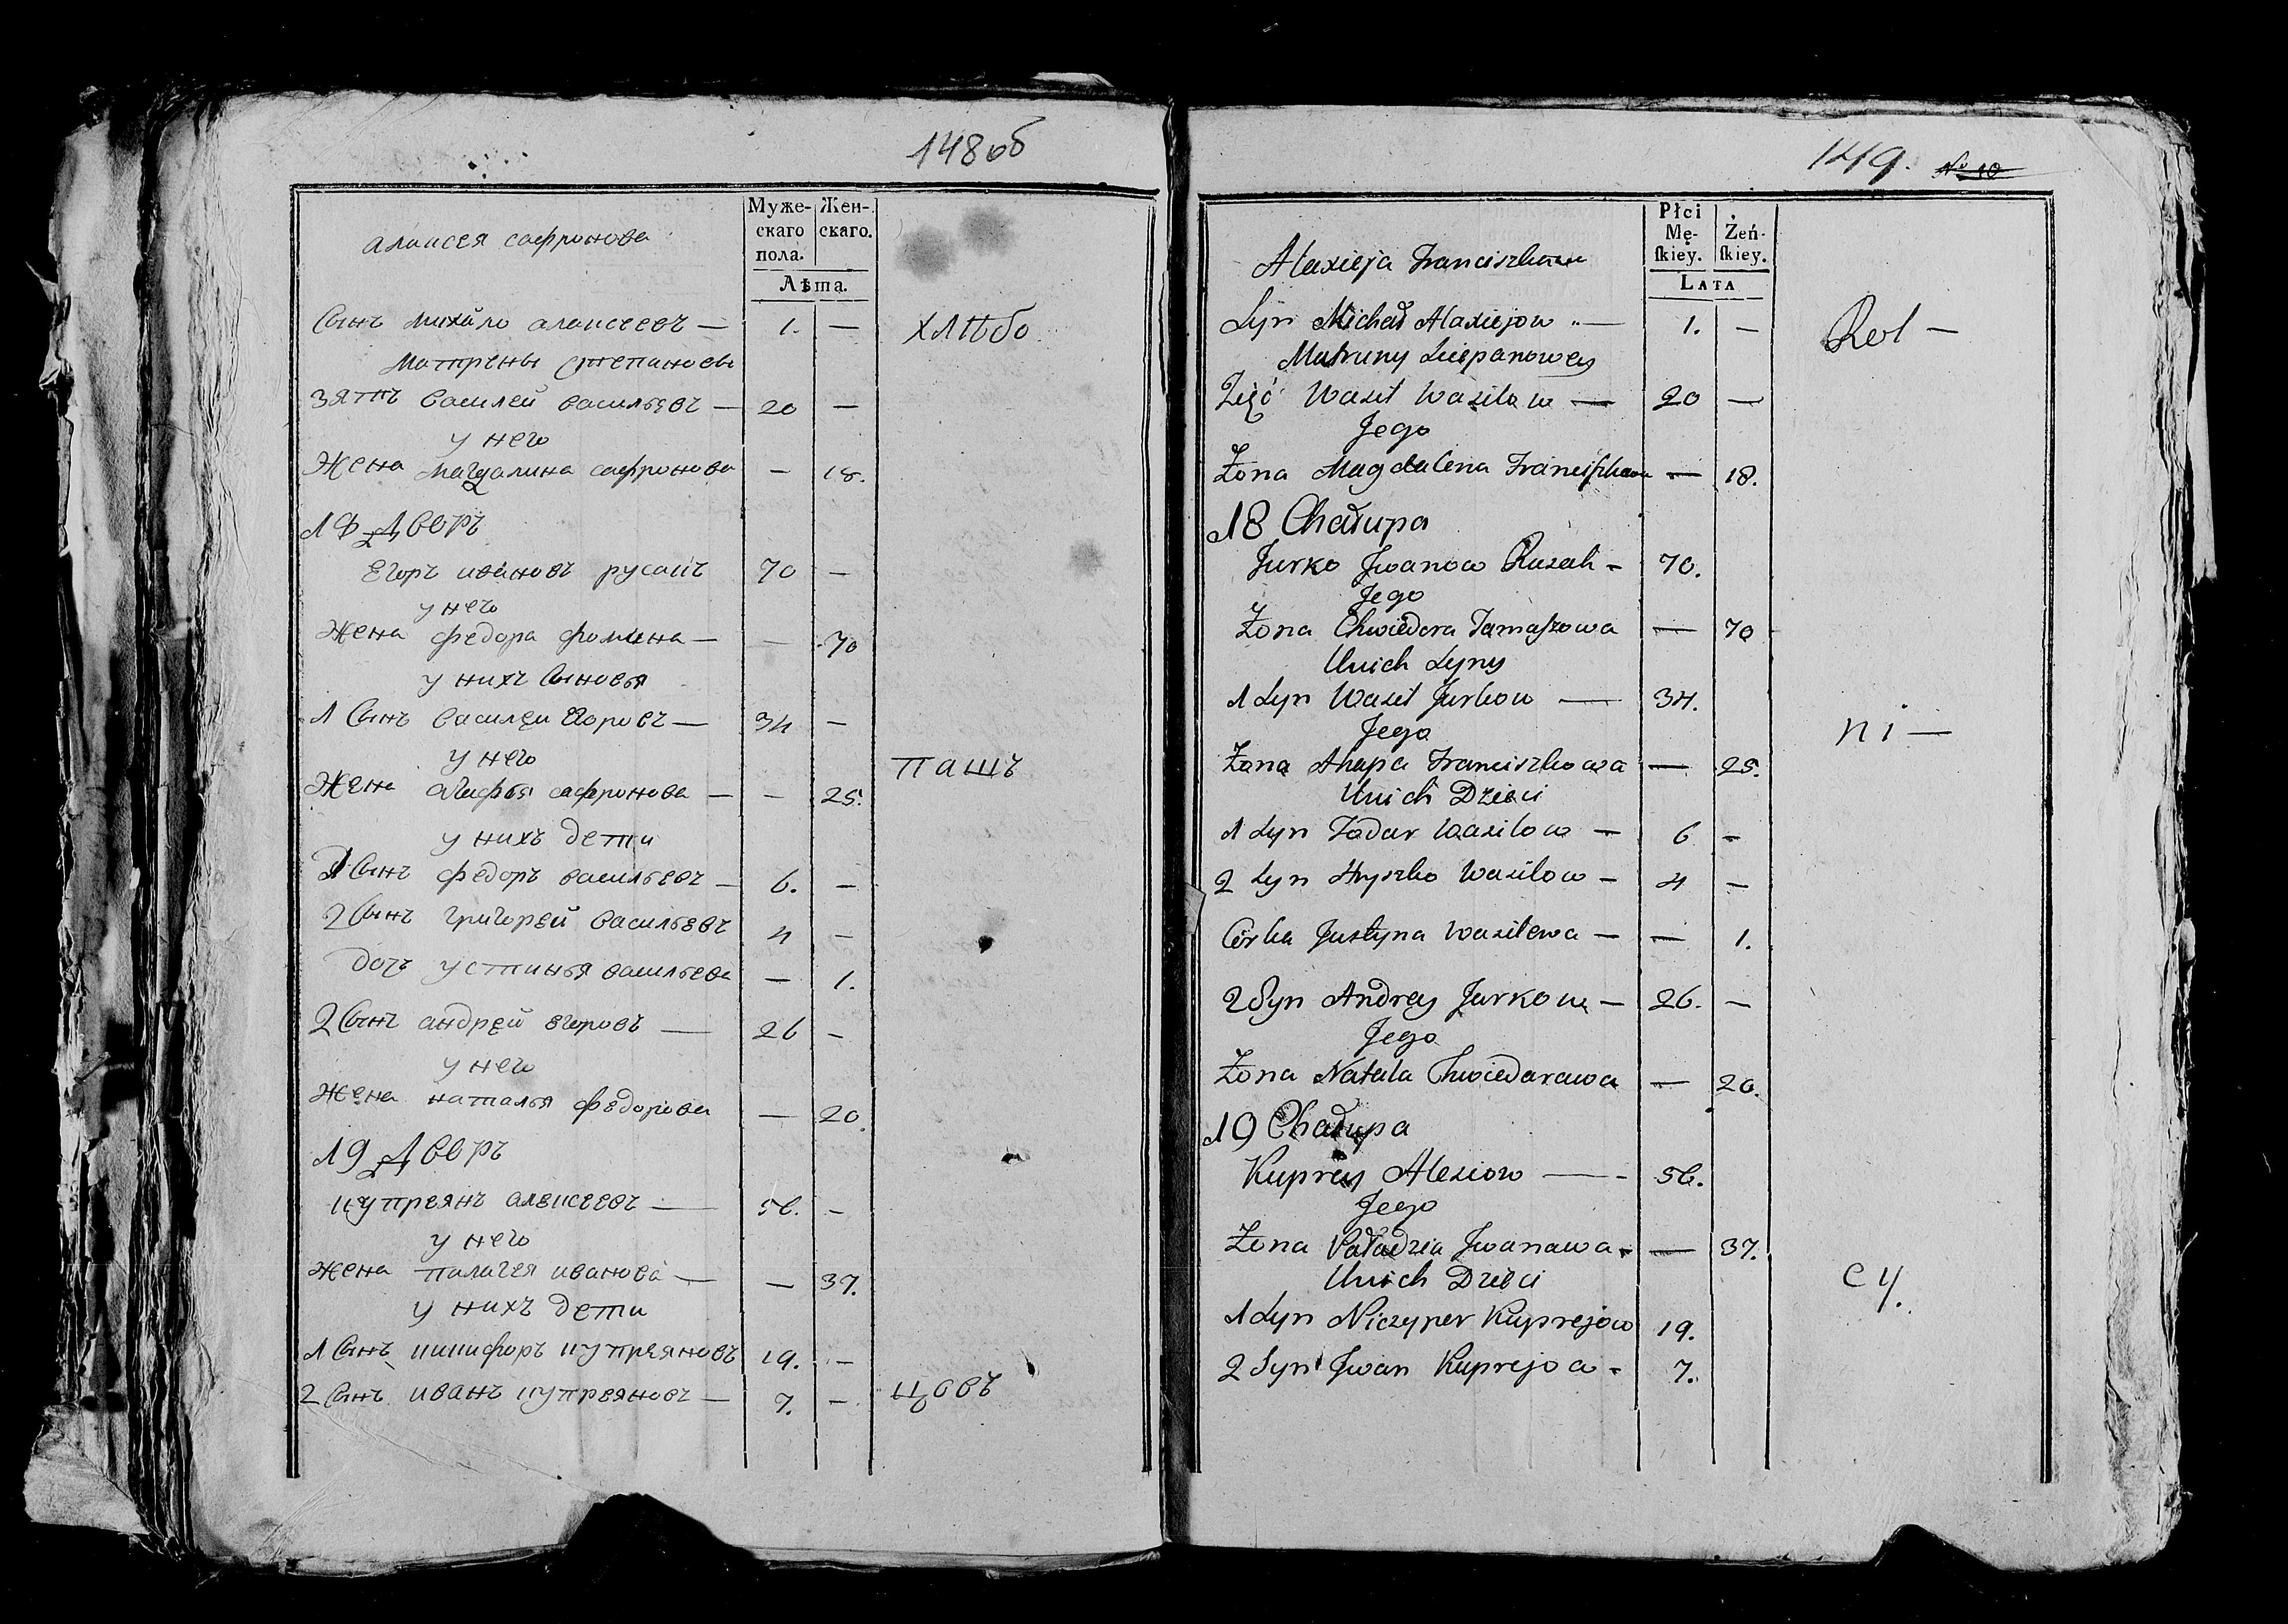 148 об
Муже-
скаго
пола.
Жен-
скаго.
Лѣта.
алексея сафронова
Сынъ михайло алексеевъ — 1. —
хлѣбо
Матрены степановы
зять василей васильевъ — 20 —
у него
Жена магдалина сафронова — 18.
18 Дворъ
Егоръ ивановъ русакъ 70 —
у него
Жена федора фомина — — 70
у нихъ сыновья
1 Сынъ василеи Егоровъ — 34 —
у него
пашъ
Жена сафронова — — 25.
у нихъ дети
1 Сынъ федоръ васильевъ — 6. —
2 Сынъ григорей васильевъ 4 —
дочь устинья васильева — 1.
2 Сынъ андрей егоровъ — 26 —
у него
Жена наталья федорова — 20.
19 Дворъ
купреянъ алексеевъ — 56. —
у него
Жена палагея иванова — — 37.
у нихъ дети
1 Сынъ никифоръ купреяновъ 19. —
2 Сынъ иванъ купреяновъ — 7. —
цовъ
149. № 10
Płci
Mę-
ſkiey.
Żeń-
ſkiey.
Lata
Alaxieja Franciszkowa
Syn Michał Alaxiejow — 1. —
Rol —
Matruny Sciepanowey
Zięć Wasil Wasilow — 20 —
Jego
Żona Magdalena Franciſzkowa — 18.
18 Chałupa
Jurko Jwanow Rusak — 70.
Jego
Żona Chwiedora Tamaſzowa — 70
Unich Syny
1 Syn Wasil Jurkow — 34.
Jego
ni —
Żona Ahapa Franciszkowa — 25.
Unich Dzieci
1 Syn Fadar Wasilow — 6 —
2 Syn Hryszko Wasilow — 4 —
Córka Justyna Wasilewa — — 1.
2 Syn Andrey Jurkow — 26. —
Jego
Żona Natala Chwiedarawa — 20.
19 Chałupa
Kuprey Alexiow — 56.
Jego
Żona Jwanawa — — 37.
Unich Dzieci
cy.
1 Syn Niczyper Kuprejow 19.
2 Syn Jwan Kuprejow — 7.